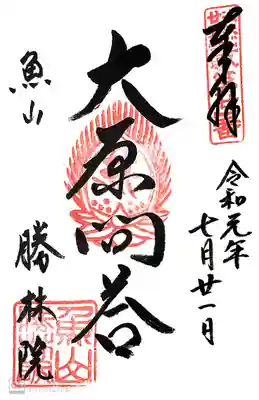 奉拝
令和元年
七月廿一日
大原問答
魚山
勝林院